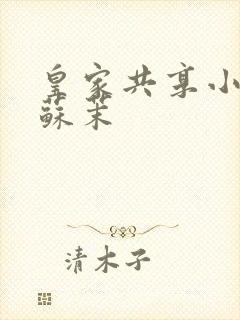 皇家共享小
蘇茉
清木子